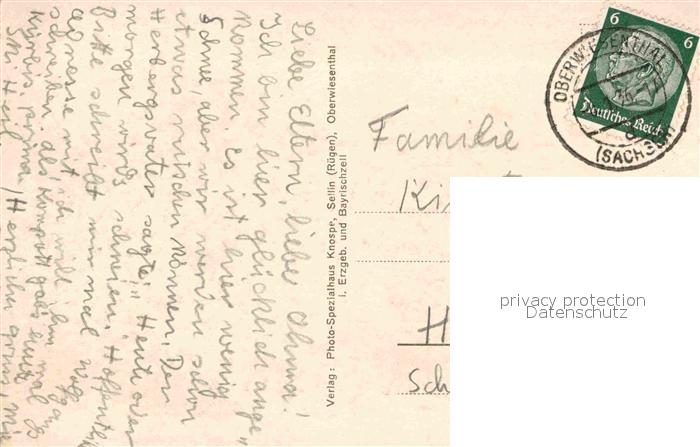 Liebe Eltern, liebes Ohma!
Ich bin hier glücklich ange=
kommen. Es ist hier wenig
Schnee, aber wir werden schon
etwas rutschen können. Der
Herbergsvater sagte: „Heute oder
morgen wird's schneien." Hoffentl.
Bitte schreibt mir mal
Adresse mit, ich will ihm
schreiben. als Kompott gab's einmal
Kürbis, prima!
Ski Heil! Herzliche
Verlag: Photo-Spezialhaus Knospe, Sellin (Rügen), Oberwiesenthal
i. Erzgeb. und Bayrischzell
6 6
Deutsches Reich
OBERWIESENTHAL
(SACHSEN)
Familie
Ki
H
Sch
privacy protection
Datenschutz